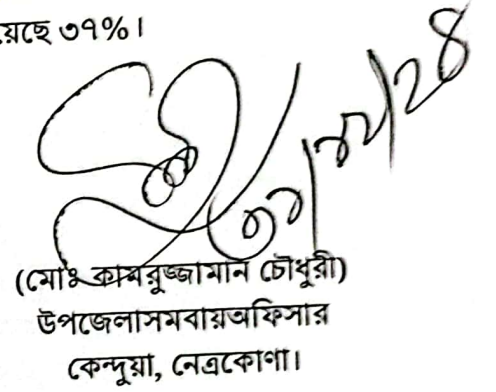 য়েছে ৩৭%।
(মোঃ কামরুজ্জামান চৌধুরী)
উপজেলাসমবায়অফিসার
কেন্দুয়া, নেত্রকোণা।